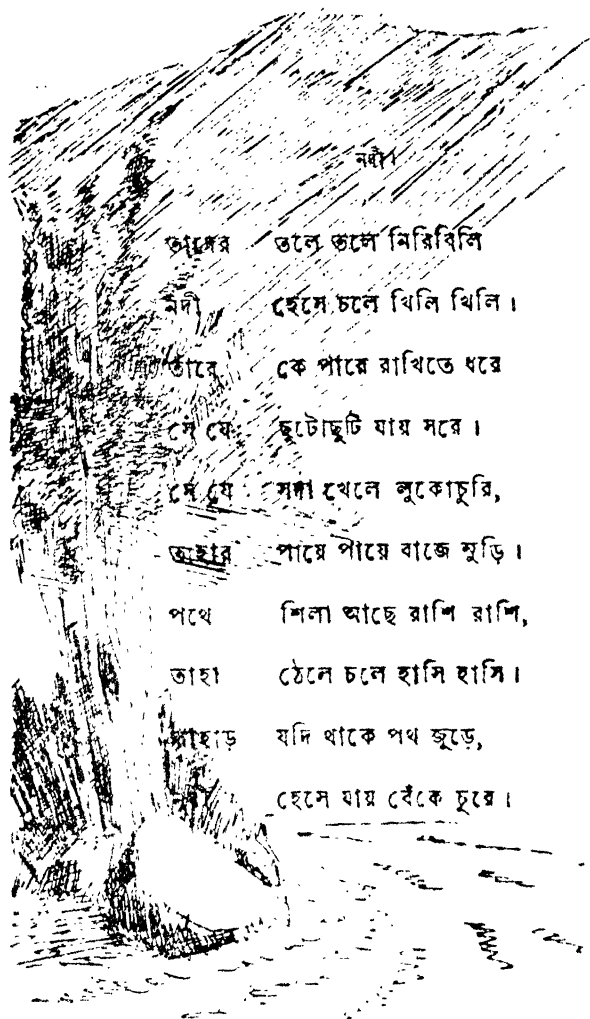 নদী।
তাদের তলে তলে নিরিবিলি
নদী হেসে চলে খিলি খিলি।
তারে কে পারে রাখিতে ধরে
সে যে ছুটোছুটি যায় সরে।
সে যে সদা খেলে লুকোচুরি,
তাহার পায়ে পায়ে বাজে মুড়ি।
পথে শিলা আছে রাশি রাশি,
তাহা ঠেলে চলে হাসি হাসি।
পাহাড় যদি থাকে পথ জুড়ে,
হেসে যায় বেঁকে চুরে।